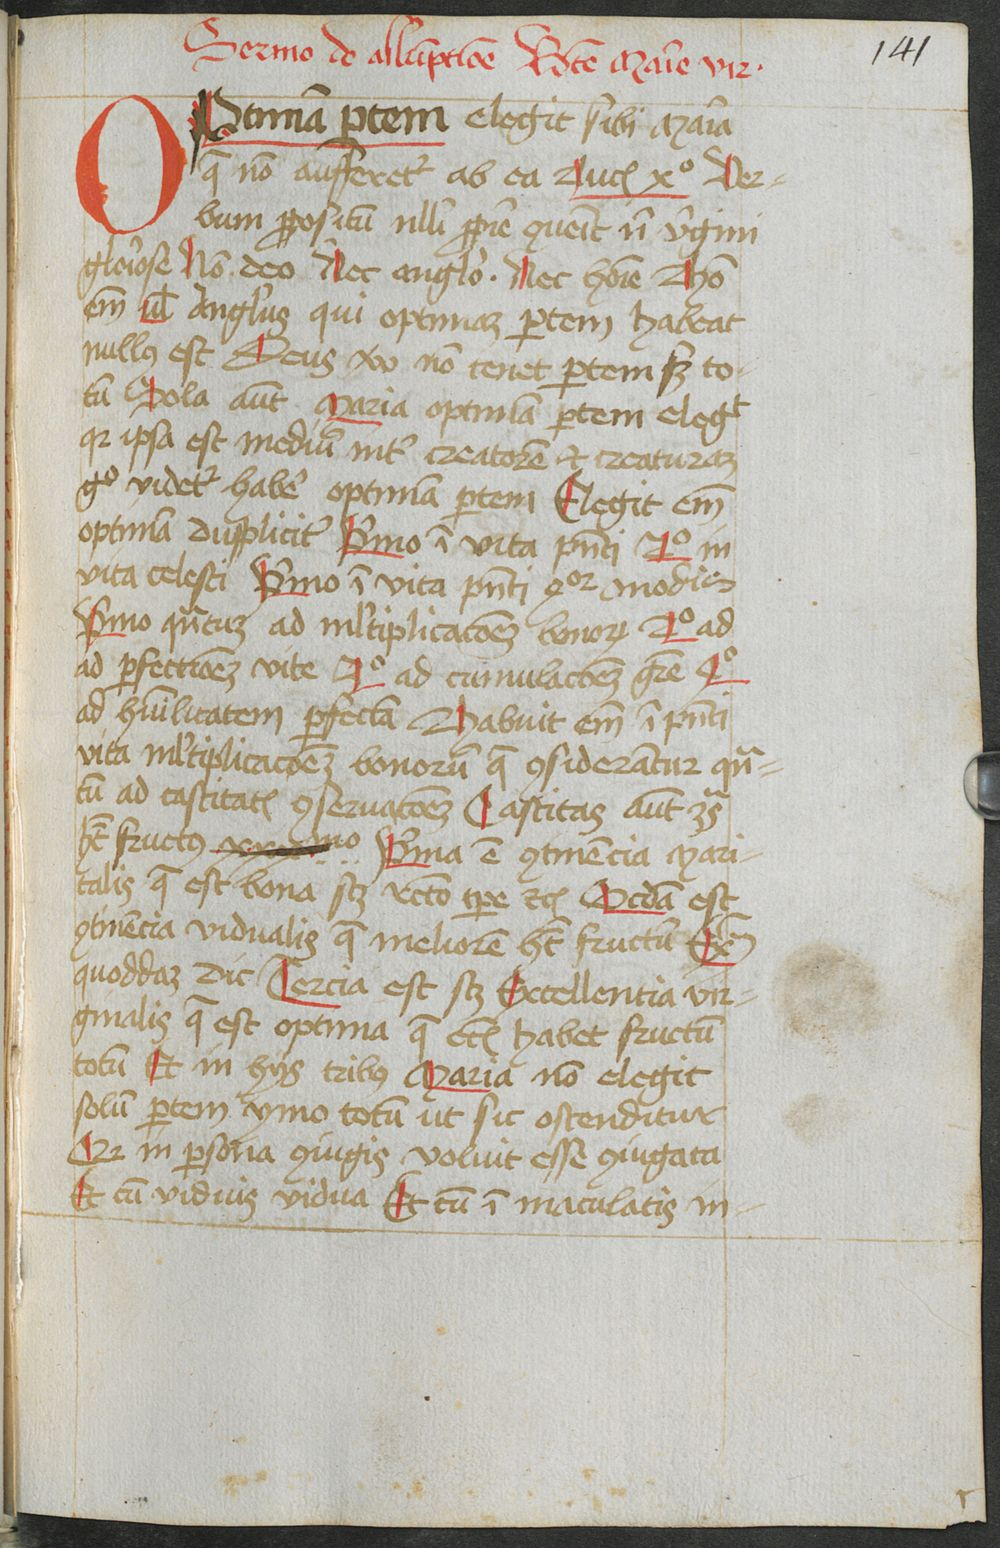 Sermo de assūptiōe Btē Mar̄ie vir.
141
OPtimā ptem elegit sibi Mar̄ia
q̄ nō aufferet᷑ ab ea Luc̄ xº Ver-
bum ꝓpositū nlli ꝓprie quenit n̄ v̄gini
gloriose Nō deo Nec anglo. Nec hōīe Nō
em̄ vl̄ Anglus qui optimaz ptem habeat
nullꝰ est Deus ꝟo nō tenet ptem sꝫ to-
tū Sola aūt Maria optimā ptem elegt
qꝛ ipsa est mediū int᷑ creatorē et creaturaz
gº videt᷑ habē optimā ptem Elegit em̄
optimā dupplicit᷑ P̄mo ī vita pn̄ti 2º in
vita celesti P̄mo ī vita pn̄ti qor modis
P̄mo qn̄tuz ad ml̄tiplicacōez bonoꝝ 2º ad
ad pfectiōez vite 3º ad cumulacōez gr̄e 4º
ad hūilitatem pfectā Habuit em̄ ī pn̄ti
vita ml̄tiplicacōez bonorū q̄ ꝯsiderantur qn̄-
tū ad castitat̄ ꝯseruacōez Castitas aūt 3s
hꝫ fructꝰ P̄ma ē ꝯtinēcia Mari-
talis q̄ est bona scꝫ rctō tpe rc̄ Scdā est
ꝯtinēcia vidualis q̄ meliorē hꝫ fructū
quoddaz dic Tercia est scꝫ Excellentia vir-
ginalis q̄ est optima q̄ ec̄ habet fructū
totū Et in hijs tribꝰ Maria nō elegit
solū ptem ymo totū ut sic ostenditur
Qꝛ in psona ꝯiugis voluit esse ꝯiugata
Et cū viduis vidua Et cū ī maculatis in-